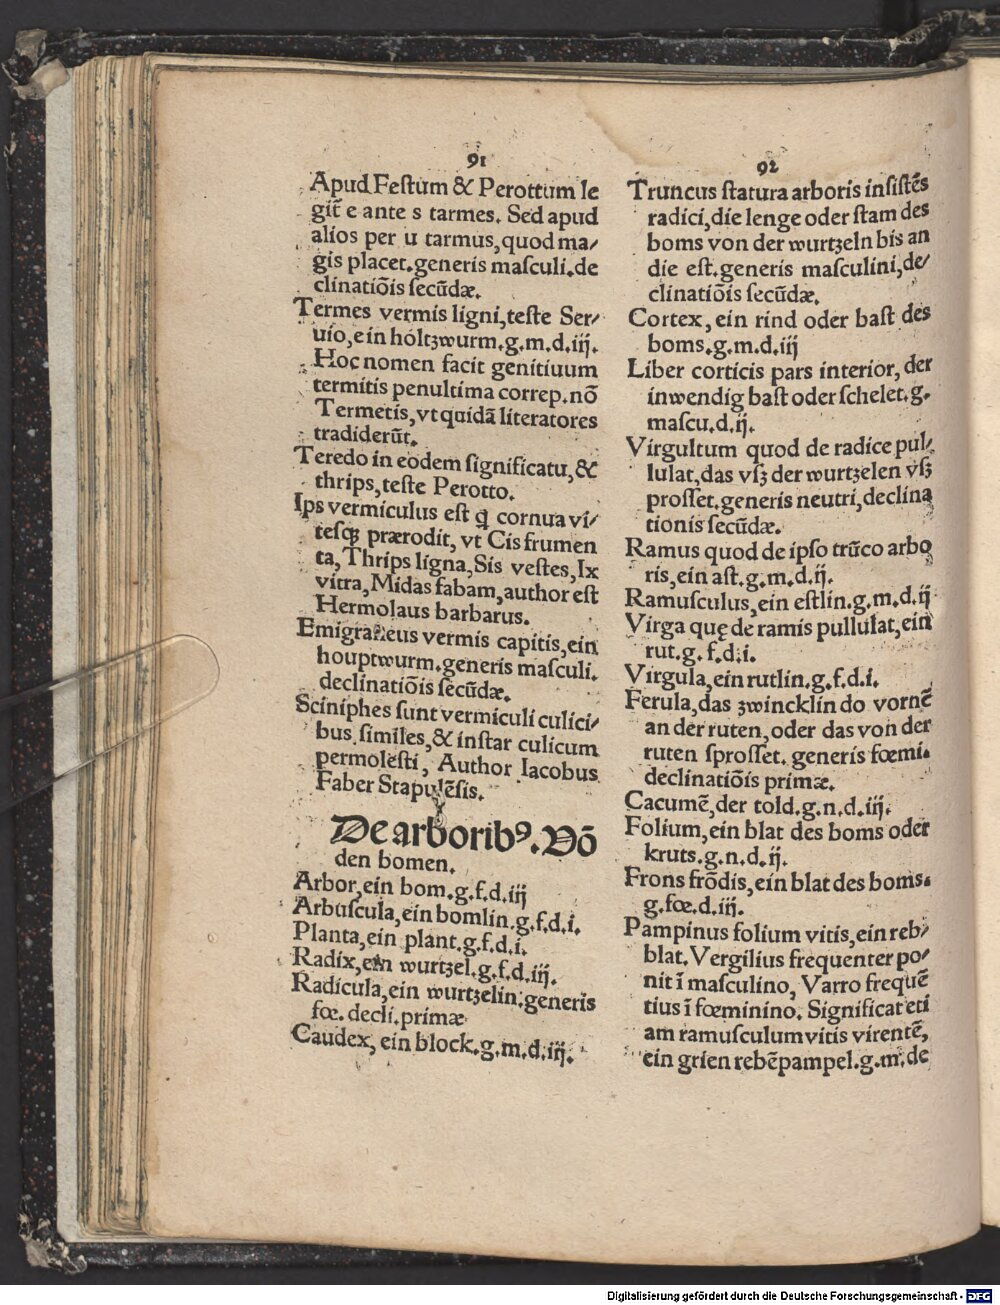 91
Apud Festum & Perottum le
git̃ e ante s tarmes. Sed apud
alios per u tarmus, quod ma⸗
gis placet. generis masculi. de
clinatiõis secũdæ.
Termes vermis ligni, teste Ser⸗
uio, ein holtzwurm. g. m. d. iij.
Hoc nomen facit genitiuum
termitis penultima correp. nõ
Termetis, vt quidã literatores
tradiderũt.
Teredo in eodem significatu, &
thrips, teste Perotto.
Ips vermiculus est q̃ cornua vi⸗
tesqꝫ prærodit, vt Cis frumen
ta, Thrips ligna, Sis vestes, Ix
vitra, Midas fabam, author est
Hermolaus barbarus.
Emigraneus vermis capitis, ein
houptwurm. generis masculi.
declinatiõis secũdæ.
Sciniphes sunt vermiculi culici⸗
bus similes, & instar culicum
permolesti, Author Iacobus
Faber Stapulẽsis.
De arboribꝰ. Võ
den bomen.
Arbor, ein bom. g. f. d. iij
Arbuscula, ein bomlin. g. f. d. i.
Planta, ein plant. g. f. d. i.
Radix, ein wurtzel. g. f. d. iij.
Radicula, ein wurtzelin. generis
fœ. decli. primæ
Caudex, ein block. g. m. d. iij.
92
Truncus statura arboris insistẽs
radici, die lenge oder stam des
boms von der wurtzeln bis an
die est. generis masculini, de⸗
clinatiõis secũdæ.
Cortex, ein rind oder bast des
boms. g. m. d. iij
Liber corticis pars interior, der
inwendig bast oder schelet. g.
mascu. d. ij.
Virgultum quod de radice pul⸗
lulat, das vsz der wurtzelen vsz
prosset. generis neutri, declina
tionis secũdæ.
Ramus quod de ipso trũco arbo
ris, ein ast. g. m. d. ij.
Ramusculus, ein estlin. g. m. d. ij
Virga quę de ramis pullulat, ein
rut. g. f. d. i.
Virgula, ein rutlin. g. f. d. i.
Ferula, das zwincklin do vornẽ
an der ruten, oder das von der
ruten sprosset. generis fœmi.
declinatiõis primæ.
Cacumẽ, der told. g. n. d. iij.
Folium, ein blat des boms oder
kruts. g. n. d. ij.
Frons frõdis, ein blat des boms.
g. fœ. d. iij.
Pampinus folium vitis, ein reb⸗
blat. Vergilius frequenter po⸗
nit ĩ masculino, Varro frequẽ
tius ĩ fœminino. Significat eti
am ramusculum vitis virentẽ,
ein grien rebẽpampel. g. m. de
Digitalisierung gefördert durch die Deutsche Forschungsgemeinschaft - DFG